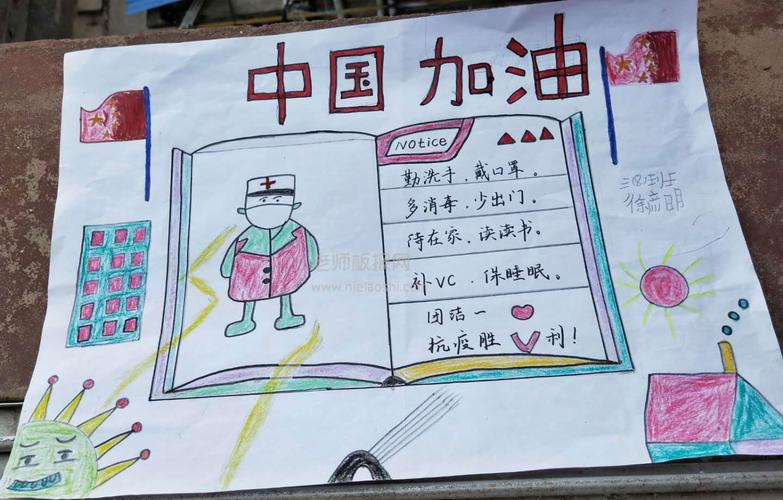 中国加油
Notice
勤洗手、戴口罩。
多消毒、少出门。
待在家、读读书。
补VC、保睡眠。
团结一
抗疫胜利!
三(8)班
徐彦明
老师板报网
www.nielaoshi.com